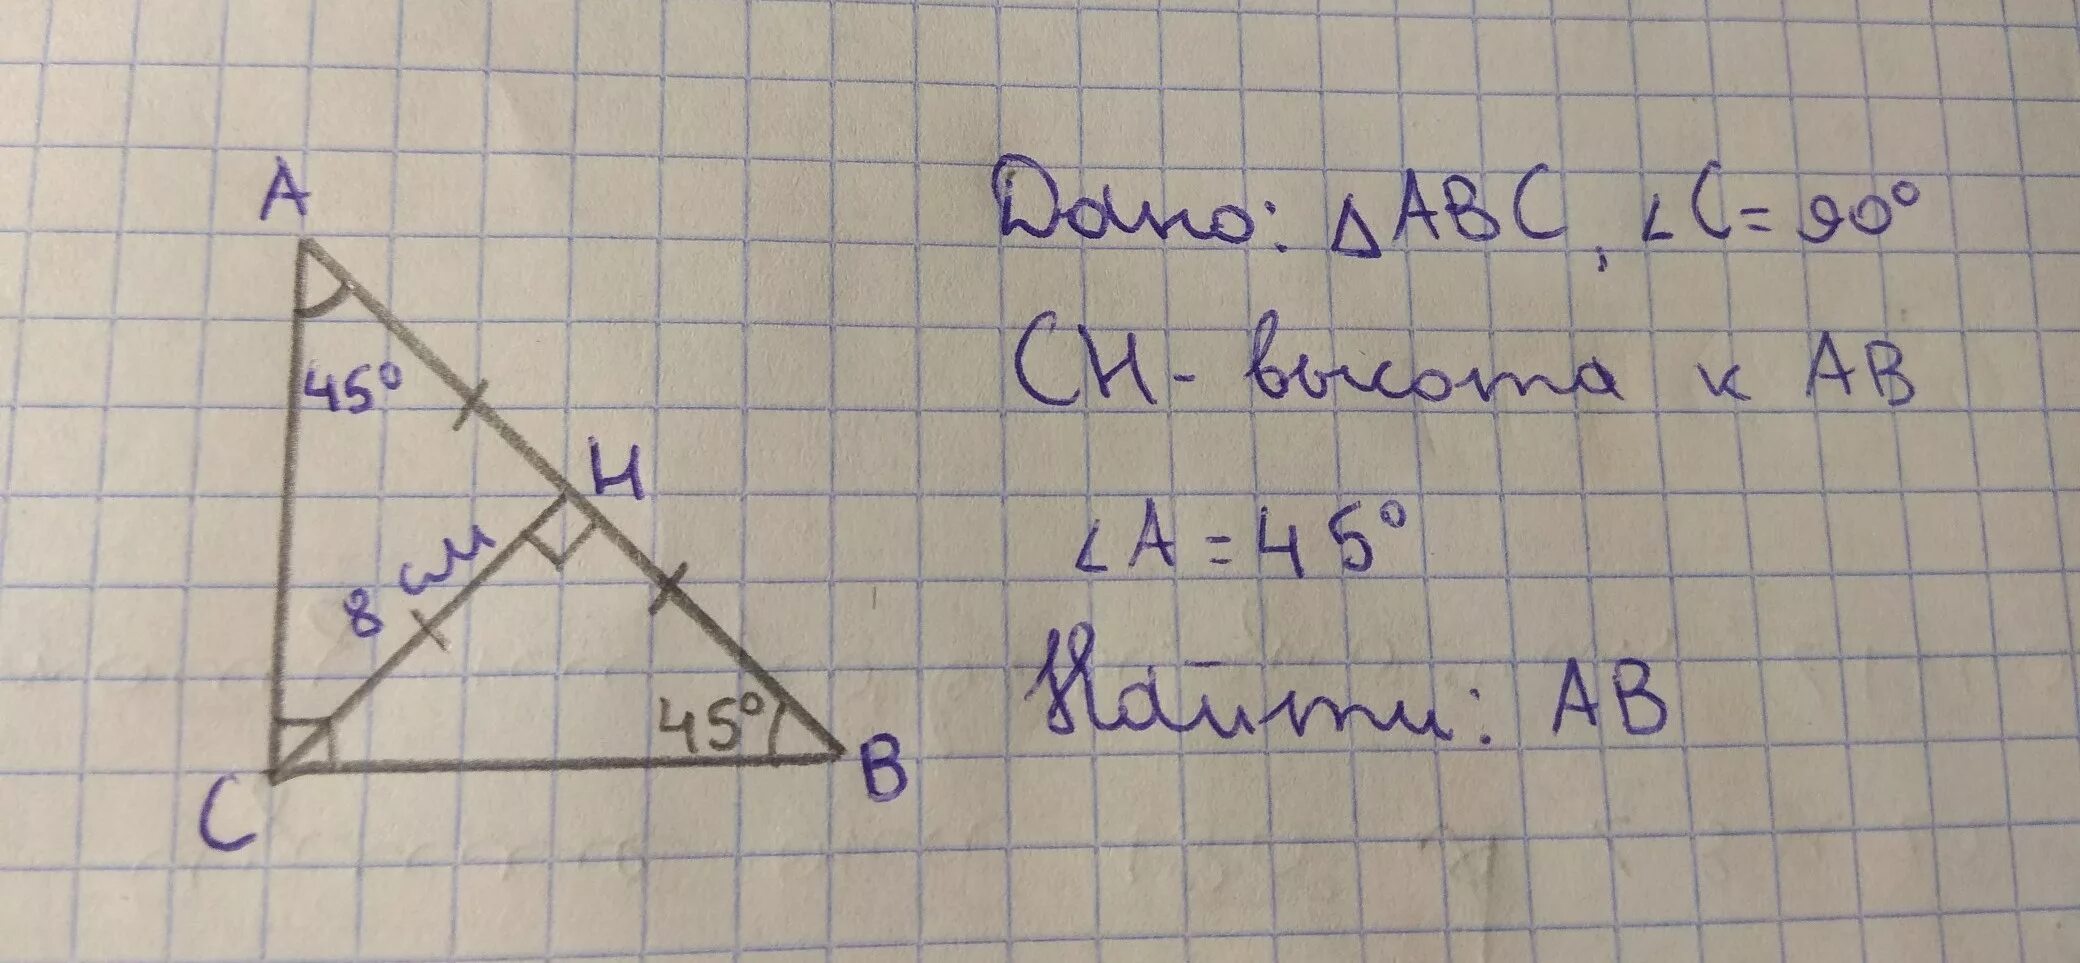 A
45°
H
8 см
45°
B
C
Дано: △ABC, ∠C = 90°
CH - высота к AB
∠A = 45°
Найти: AB